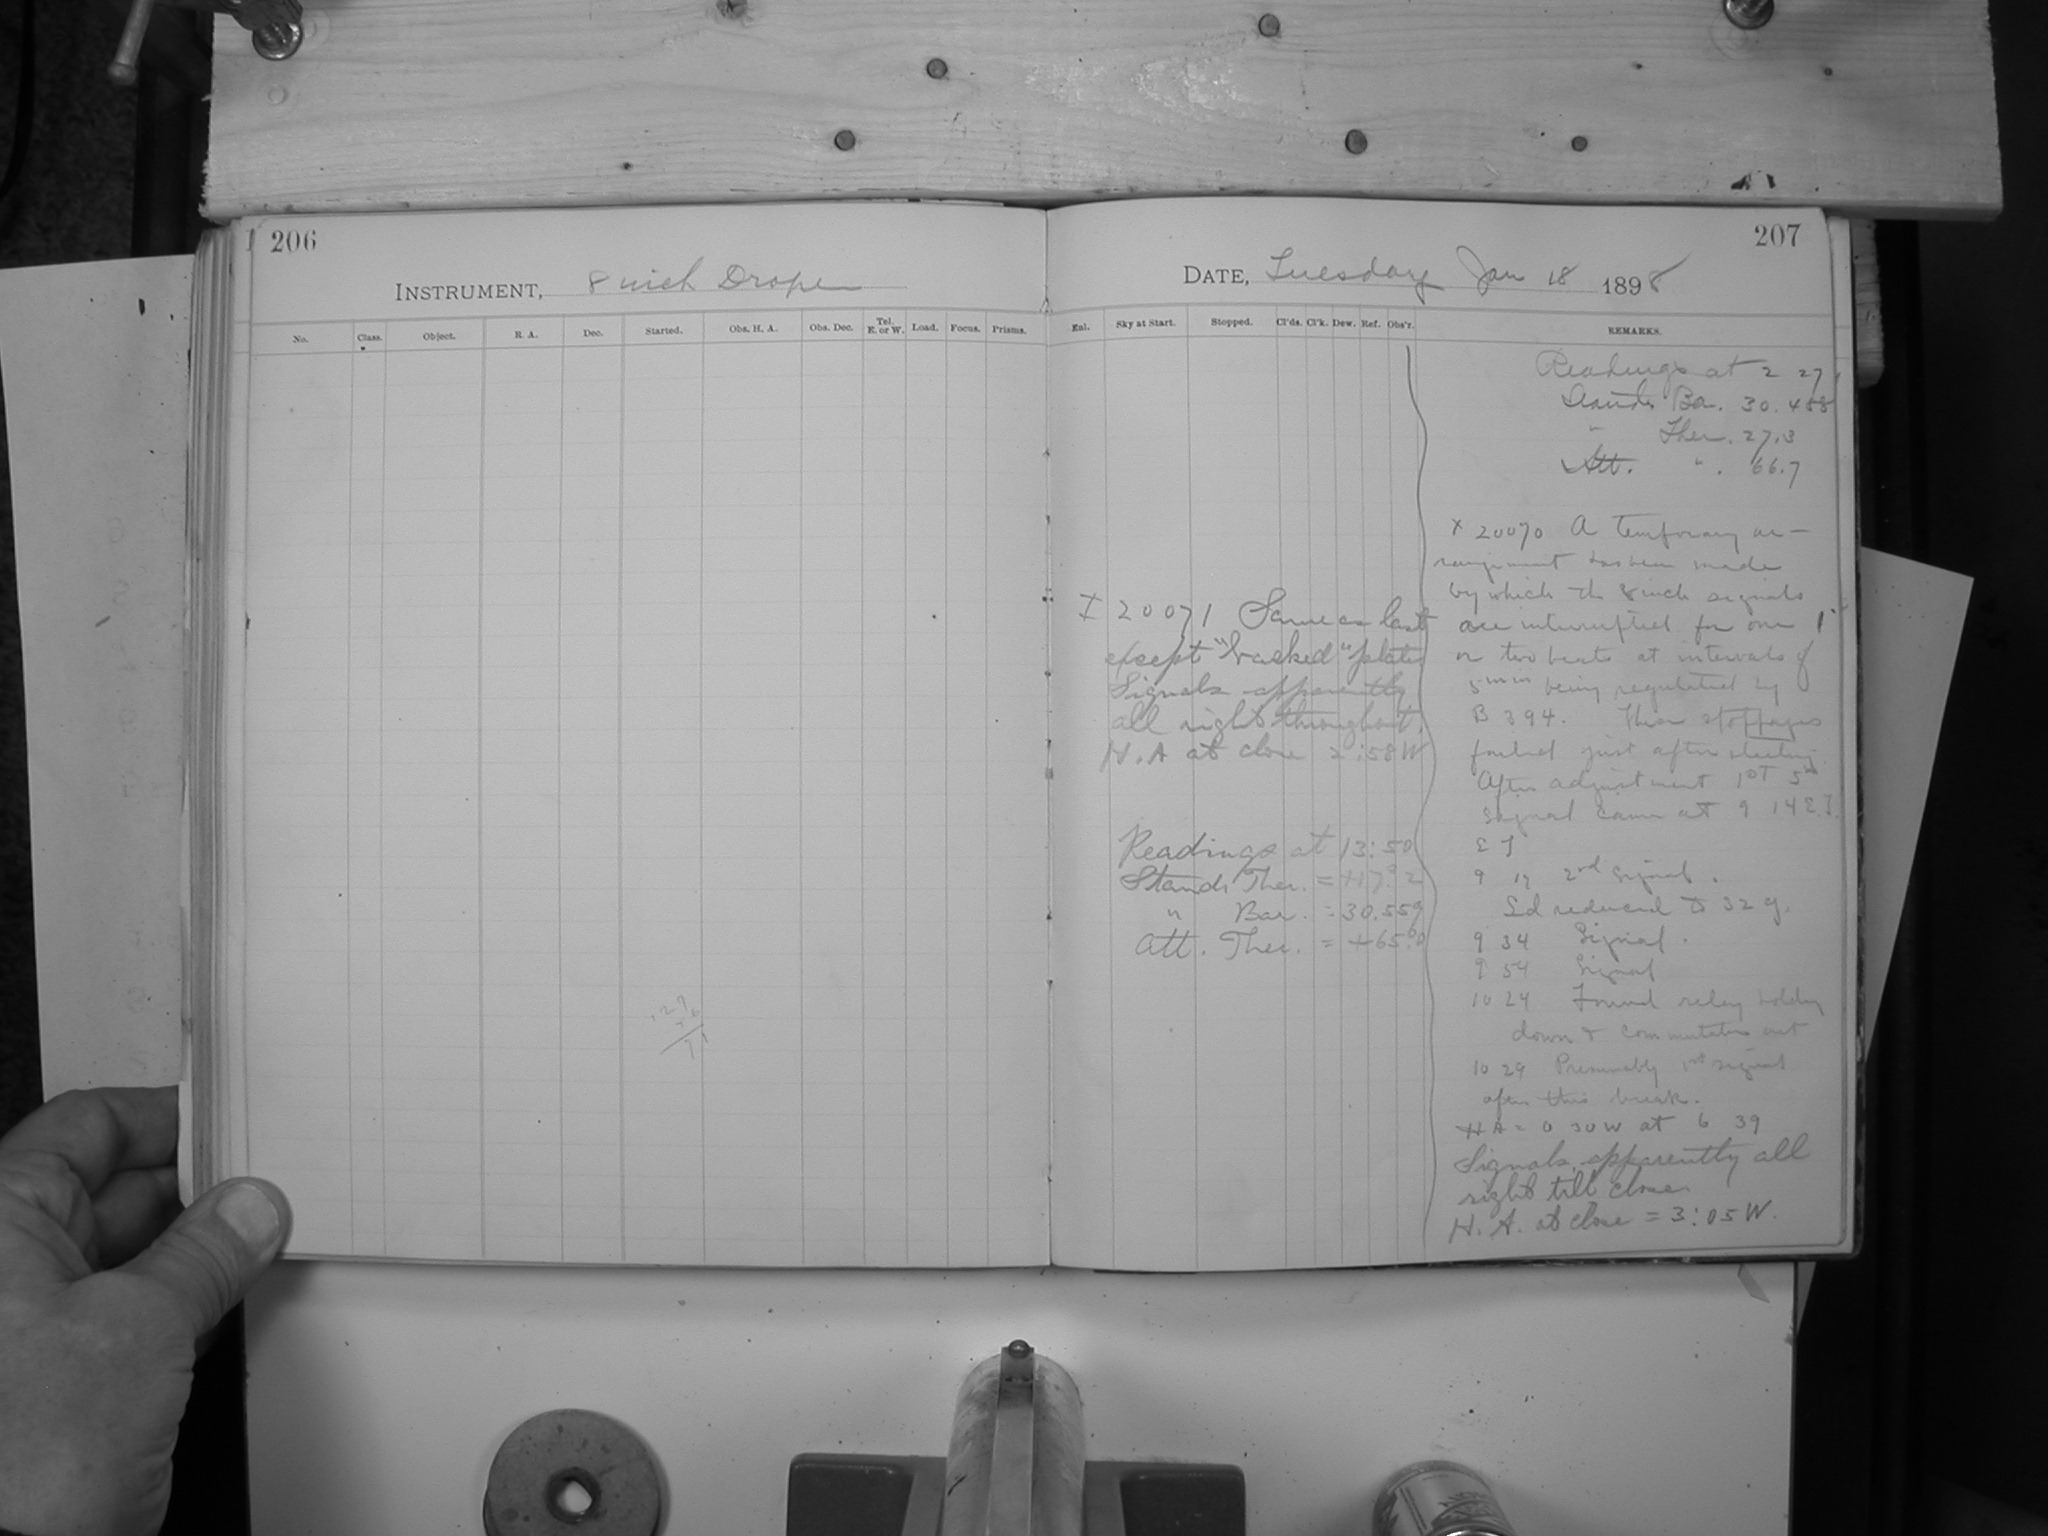 206
INSTRUMENT, 8 inch Draper
No. Class. Object. R. A. Dec. Started. Obs. H. A. Obs. Dec. Tel. E. or W. Load. Focus. Prisms.
207
DATE, Tuesday Jan 18 1898
Enl. Sky at Start. Stopped. Cl'ds. Cl'k. Dew. Ref. Obs'r. REMARKS.
I 20071 Same as last
except "backed" plate
Signals apparently
all right throughout.
H. A at close 2:58W
Readings at 13:50
Stand. Ther. = +17.2
" Bar. = 30.559
Att. Ther. = +65.0
Readings at 2 27
Stand. Ba. 30.488
" Ther. 27.3
Att. " 66.7
X 20070 A temporary ar-
rangement has been made
by which the 8 inch signals
are interrupted for one
or two beats at intervals of
5 min being regulated by
B 394. These stoppages
failed just after starting.
After adjustment 1st 5m
signal came at 9 14 E.T.
E T
9 19 2nd signal.
Ld reduced to 32 g.
9 34 Signal.
9 54 Signal
10 24 Found relay holding
down & commutator out
10 29 Presumably 1st signal
after this break.
HA = 0 30 W at 6 39
Signals apparently all
right till close.
H. A. at close = 3:05 W.